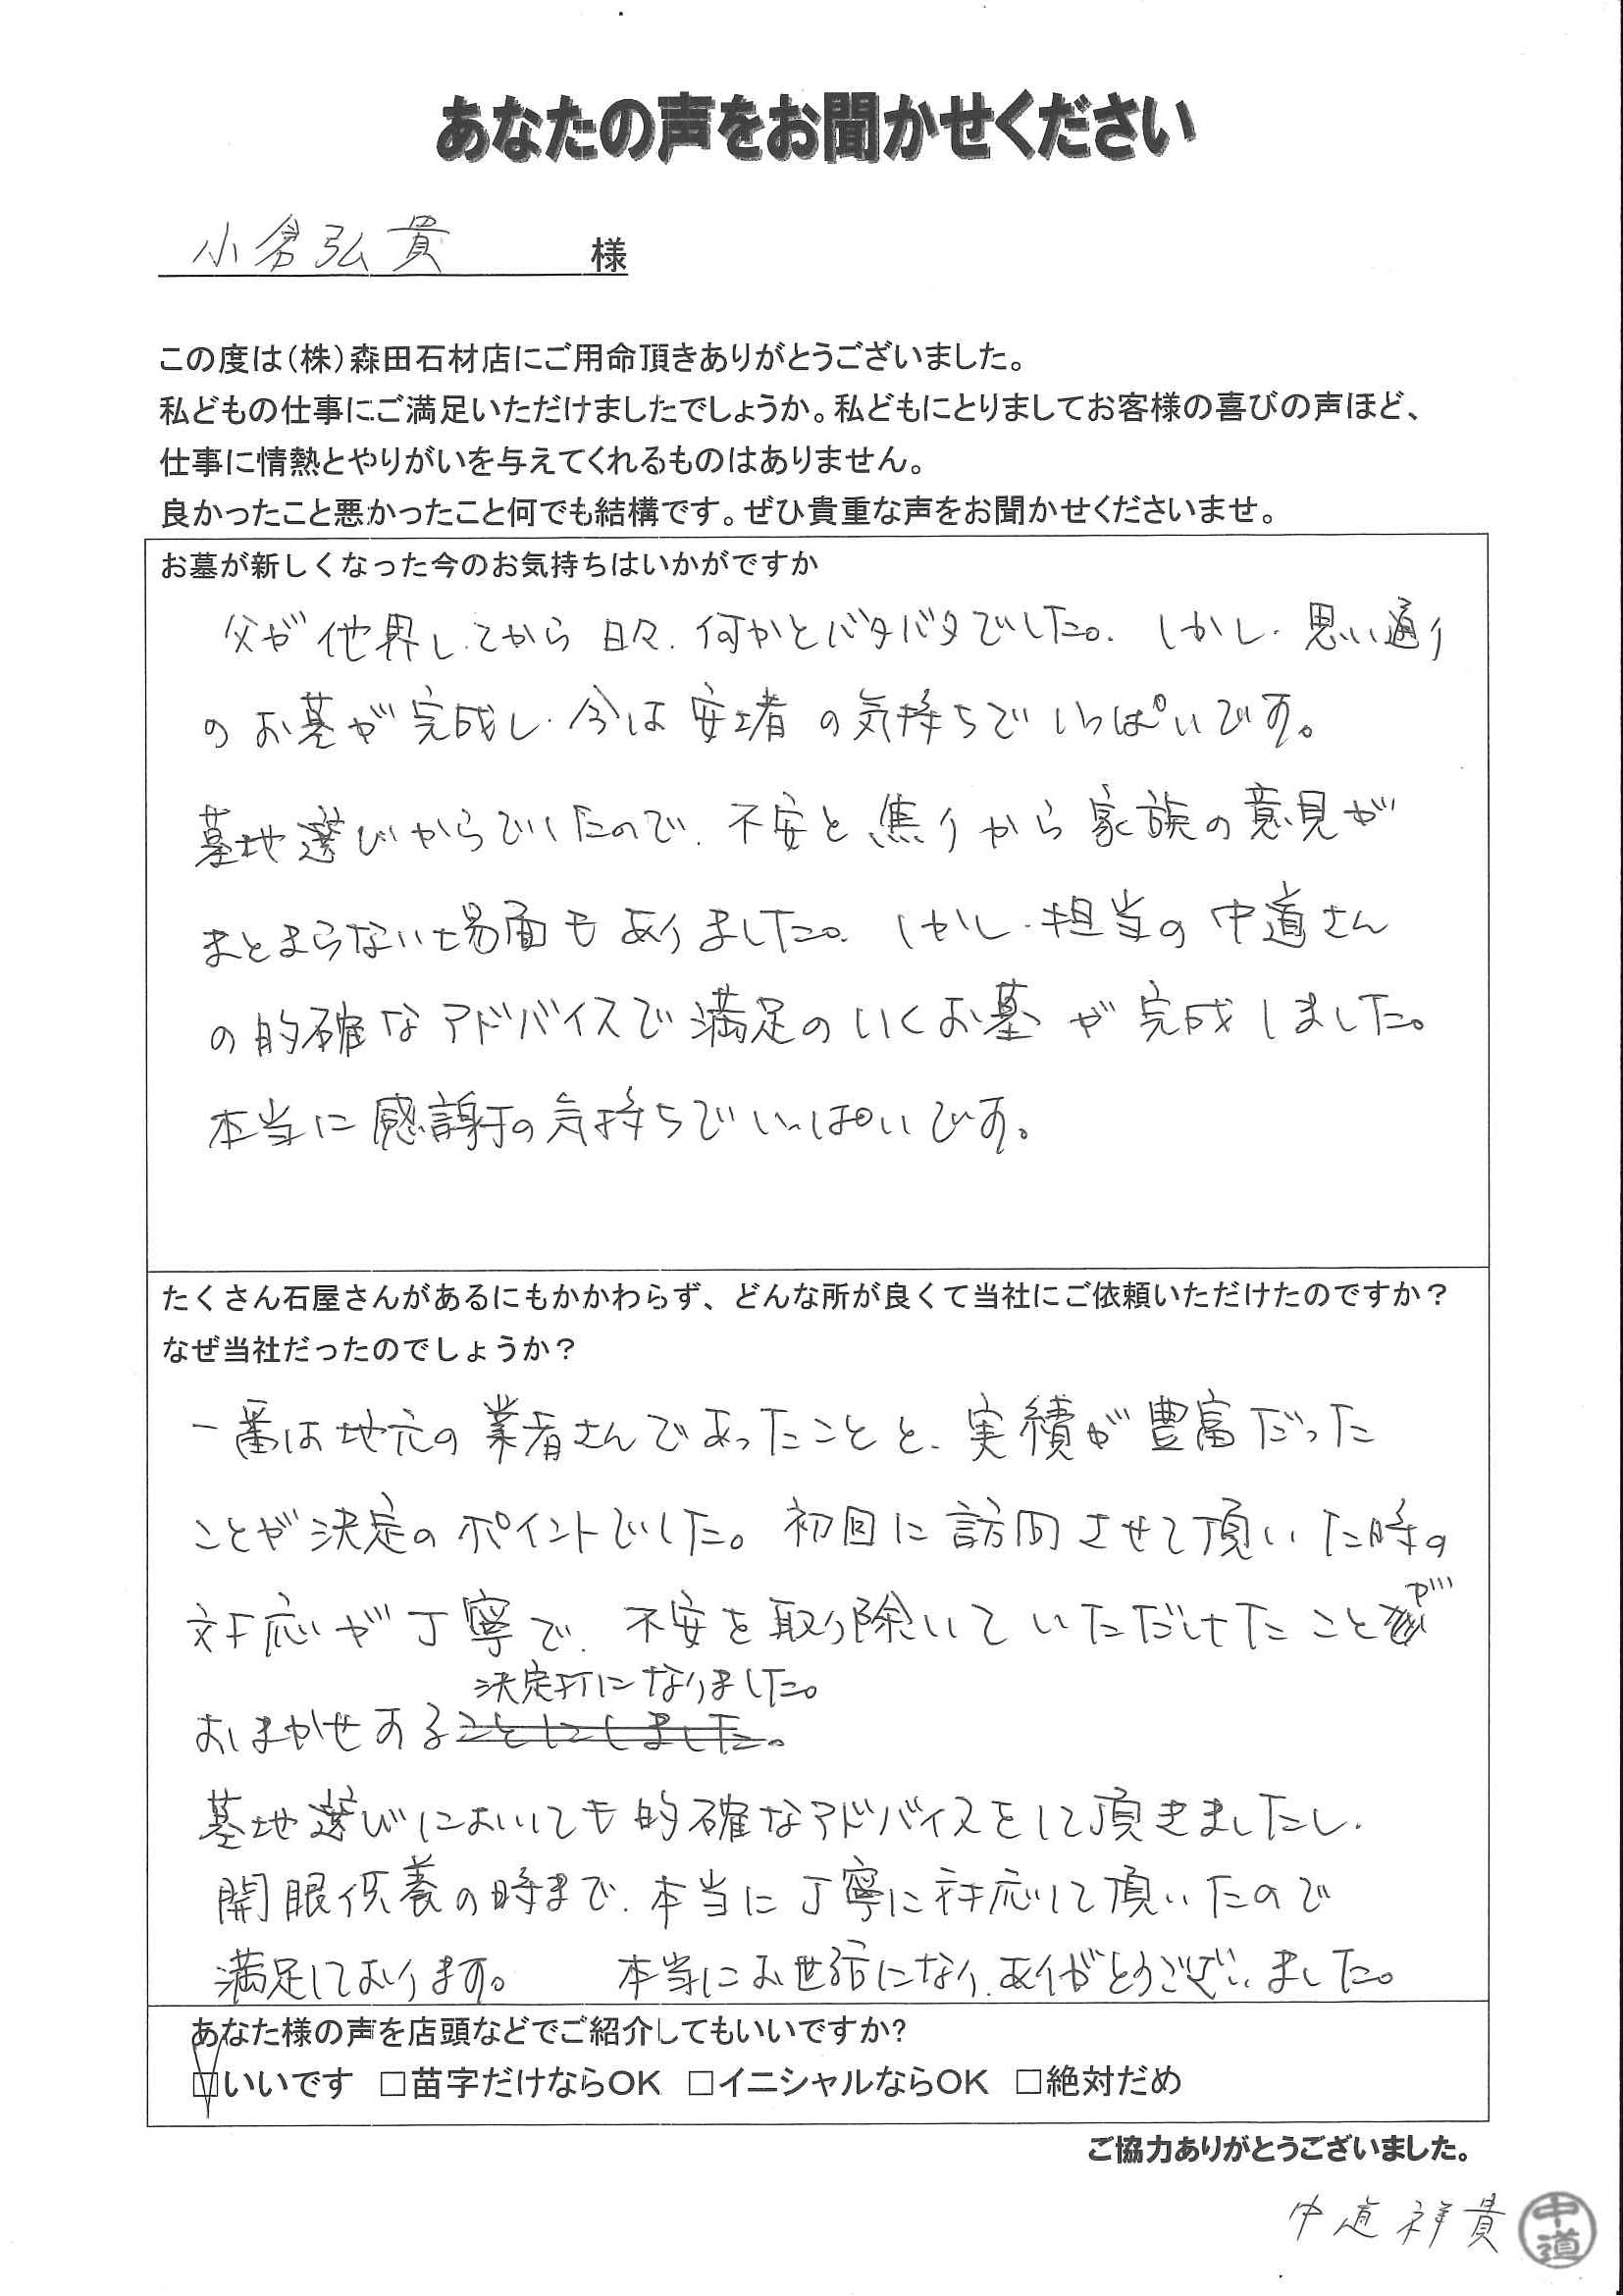 あなたの声をお聞かせください
小倉弘貴 様
この度は(株)森田石材店にご用命頂きありがとうございました。
私どもの仕事にご満足いただけましたでしょうか。私どもにとりましてお客様の喜びの声ほど、
仕事に情熱とやりがいを与えてくれるものはありません。
良かったこと悪かったこと何でも結構です。ぜひ貴重な声をお聞かせくださいませ。
お墓が新しくなった今のお気持ちはいかがですか
父が他界してから日々、何かとバタバタでした。しかし、思い通り
のお墓が完成し、今は安堵の気持ちでいっぱいです。
墓地選びからでしたので、不安と焦りから家族の意見が
まとまらない場面もありました。しかし、担当の中道さん
の的確なアドバイスで満足のいくお墓が完成しました。
本当に感謝の気持ちでいっぱいです。
たくさん石屋さんがあるにもかかわらず、どんな所が良くて当社にご依頼いただけたのですか?
なぜ当社だったのでしょうか?
一番は地元の業者さんであったことと、実績が豊富だった
ことが決定のポイントでした。初回に訪問させて頂いた時の
対応が丁寧で、不安を取り除いていただけたことが
決定打になりました。
おまかせすることにしました。
墓地選びにおいても的確なアドバイスをして頂きましたし、
開眼供養の時まで、本当に丁寧に対応して頂いたので
満足しております。 本当にお世話になり、ありがとうございました。
あなた様の声を店頭などでご紹介してもいいですか?
☑いいです □苗字だけならOK □イニシャルならOK □絶対だめ
ご協力ありがとうございました。
中道祥貴 中道